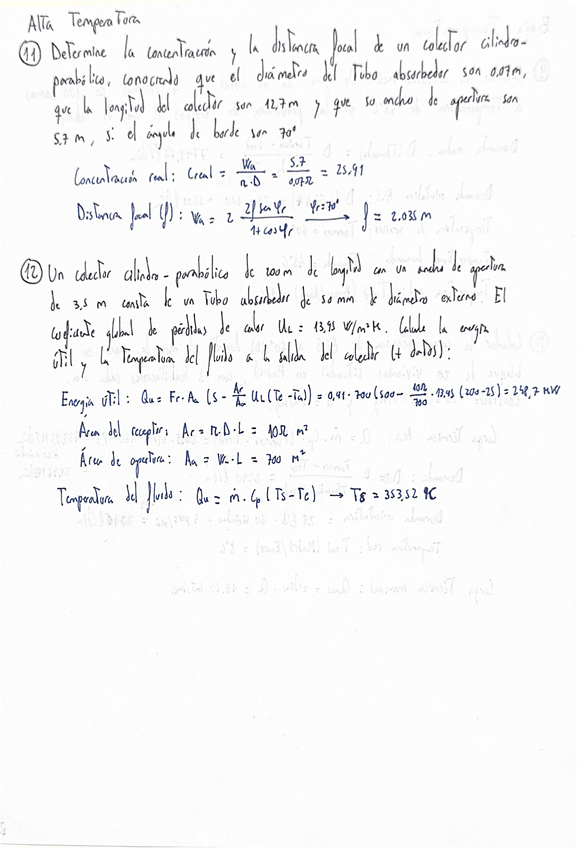 Alta Temperatura
11 Determine la concentración y la distancia focal de un colector cilindro-
parabólico, conociendo que el diámetro del Tubo absorbedor son 0.07m,
que la longitud del colector son 12,7m y que su ancho de apertura son
5,7 m, si el ángulo de borde son 70º
Concentración real: Creal = Wa/π.D = 5.7/0,07π = 25,91
Distancia focal (f): Wa = 2 2f sen φr/1+cosφr φr=70º → f = 2.035 m
12 Un colector cilindro-parabólico de 200m de longitud con un ancho de apertura
de 3,5 m consta de un Tubo absorbedor de 50 mm de diámetro externo. El
coeficiente global de pérdidas de calor UL = 13,95 W/m²K. Calcule la energía
útil y la temperatura del fluido a la salida del colector (+ datos):
Energía útil: Qu = Fr.Aa (S - Ar/Aa UL(Te-Ta)) = 0,91.700(500 - 10π/700.13,95 (200-25) = 248,7 KW
Área del receptor: Ar = π.D.L = 10π m²
Área de apertura: Aa = Wa.L = 700 m²
Temperatura del fluido: Qu = ṁ.Cp(Ts-Te) → Ts = 353,52 ºC